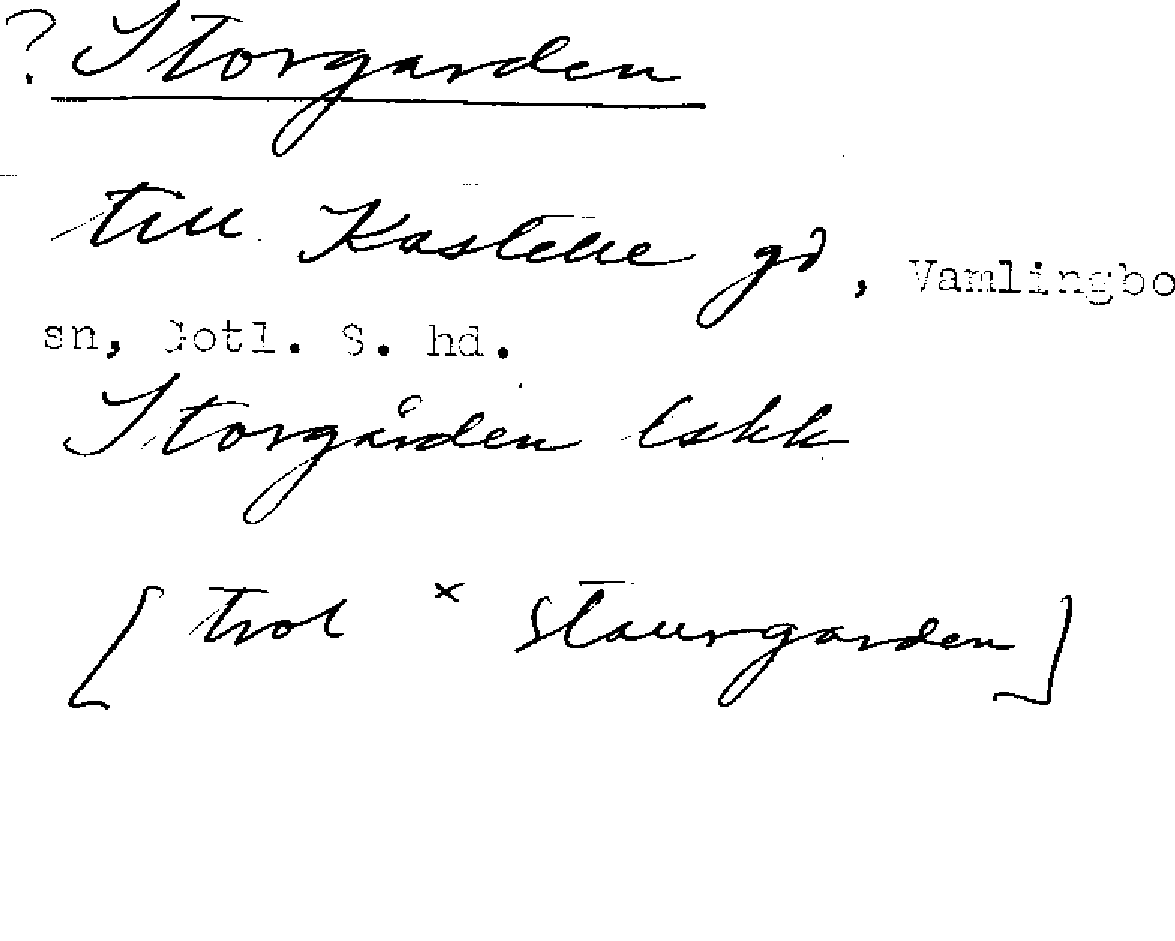 ? Storgarden
till Kastelle gd, Vamlingbo
sn, Gotl. S. hd.
Storgården lskk
[ trol × staurgarden ]